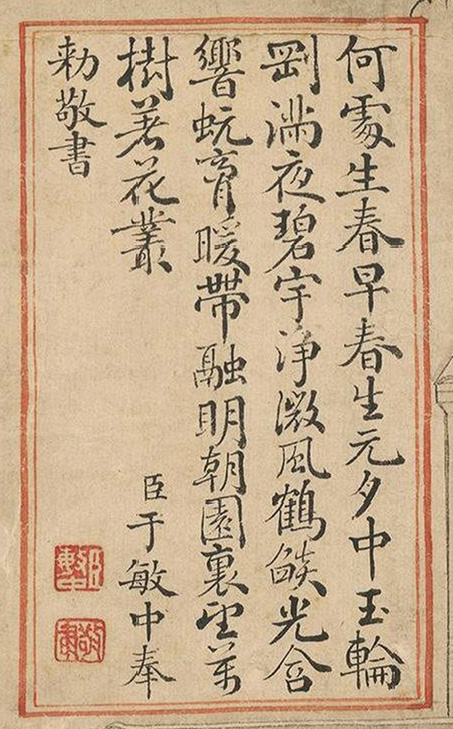 何處生春早春生元夕中玉輪
剛滿夜碧宇淨微風鶴燄光含
響蚖膏暖帶融明朝園裏望萬
樹著花叢
臣于敏中奉
勅敬書